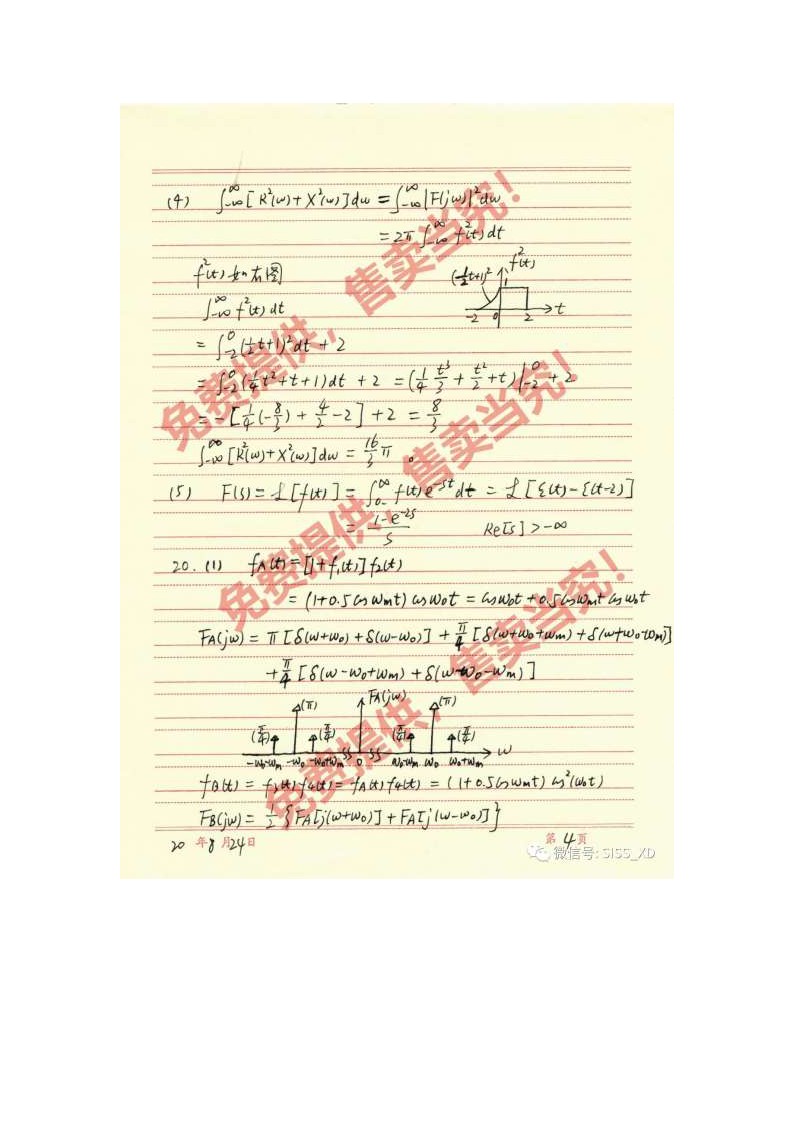 (4) ∫_{-∞}^{∞}[R²(ω)+X²(ω)]dω = ∫_{-∞}^{∞}|F(jω)|²dω
= 2π∫_{-∞}^{∞} f²(t)dt
f²(t)如右图
(½t+1)² f²(t) 1 -2 0 2 t
∫_{-∞}^{∞} f²(t)dt
= ∫_{-2}^{0}(½t+1)²dt + 2
= ∫_{-2}^{0}(¼t²+t+1)dt + 2 = (¼ t³/3 + t²/2 + t)|_{-2}^{0} + 2
= -[¼(-8/3) + 4/2 - 2] + 2 = 8/3
∫_{-∞}^{∞}[R²(ω)+X²(ω)]dω = 16/3 π 。
(5) F(s) = ℒ[f(t)] = ∫_{0-}^{∞} f(t)e^{-st}dt = ℒ[ε(t)-ε(t-2)]
= (1-e^{-2s})/s Re[s] > -∞
20. (1) f_A(t) = [1+f₁(t)]f₂(t)
= (1+0.5cosω_mt)cosω₀t = cosω₀t + 0.5cosω_mt cosω₀t
F_A(jω) = π[δ(ω+ω₀)+δ(ω-ω₀)] + π/4[δ(ω+ω₀+ω_m)+δ(ω+ω₀-ω_m)]
+ π/4[δ(ω-ω₀+ω_m)+δ(ω-ω₀-ω_m)]
(π) F_A(jω) (π)
(π/4) (π/4) (π/4) (π/4)
-ω₀-ω_m -ω₀ -ω₀+ω_m 0 ω₀-ω_m ω₀ ω₀+ω_m ω
f_B(t) = f₃(t)f₄(t) = f_A(t)f₄(t) = (1+0.5cosω_mt)cos²(ω₀t)
F_B(jω) = ½{F_A[j(ω+ω₀)] + F_A[j(ω-ω₀)]}
20 年 8 月 24 日 第 4 页
微信号: SISS_XD
免费提供，售卖当究！
免费提供，售卖当究！
免费提供，售卖当究！